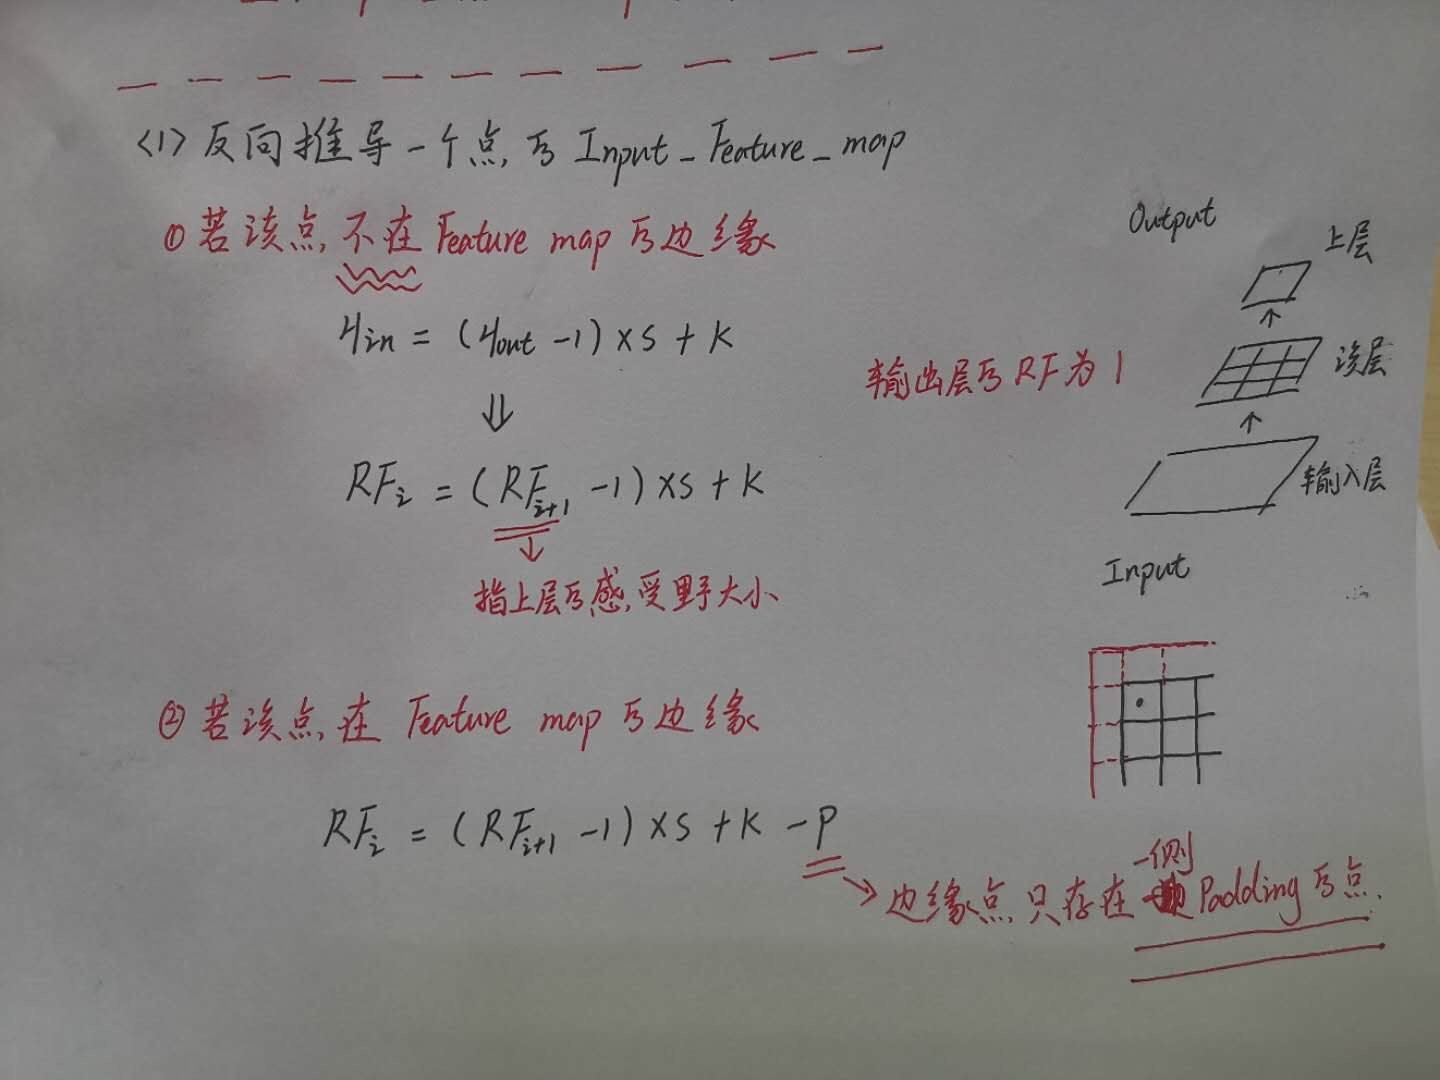 <1> 反向推导一个点的 Input_Feature_map
① 若该点不在 Feature map 的边缘
Hin = (Hout - 1) × S + K
⇓
RFi = (RFi+1 - 1) × S + K
↓
指上层的感受野大小
输出层的 RF 为 1
Output
上层
↑
该层
↑
输入层
Input
② 若该点在 Feature map 的边缘
RFi = (RFi+1 - 1) × S + K - P
→ 边缘点只存在一侧 Padding 的点.